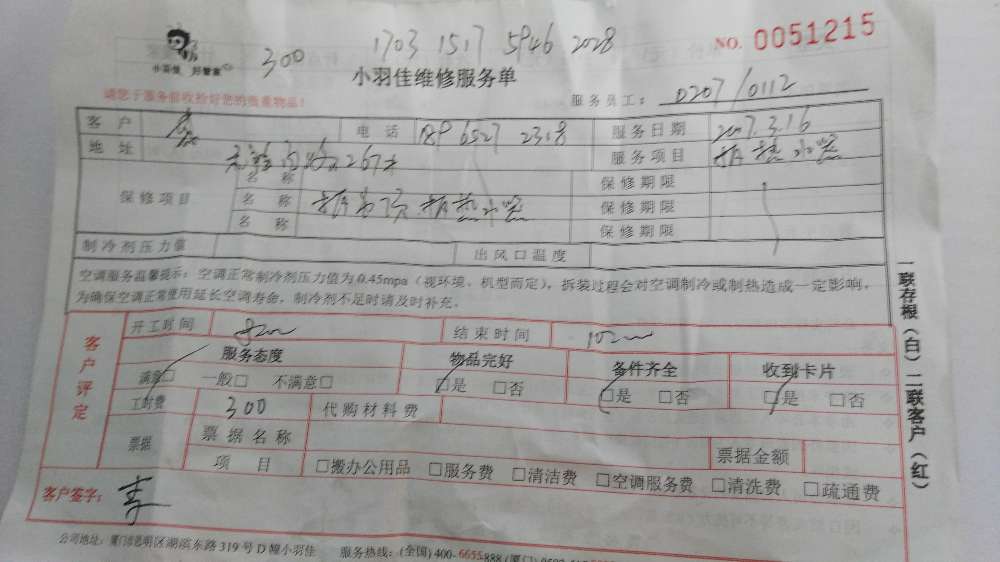 300 1703 1517 5946 2028
NO. 0051215
小羽佳 好管家
小羽佳维修服务单
请您于服务前收拾好您的贵重物品!
服务员工: D207/0112
客户 电话 189 6527 2318 服务日期 2017.3.16
地址 服务项目 拆热水器
保修项目 名称 保修期限
名称 拆热水器 保修期限
名称 保修期限
制冷剂压力值 出风口温度
空调服务温馨提示: 空调正常制冷剂压力值为0.45mpa (视环境、机型而定), 拆装过程会对空调制冷或制热造成一定影响,
为确保空调正常使用延长空调寿命, 制冷剂不足时请及时补充.
客户评定
开工时间 结束时间
服务态度 物品完好 备件齐全 收到卡片
满意□ 一般□ 不满意□ □是 □否 □是 □否 □是 □否
工时费 300 代购材料费
票据 票据名称 票据金额
项目 □搬办公用品 □服务费 □清洁费 □空调服务费 □清洗费 □疏通费
客户签字:
一联存根(白) 二联客户(红)
公司地址: 厦门市思明区湖滨东路319号D幢小羽佳 服务热线: (全国) 400-6655888 (厦门)